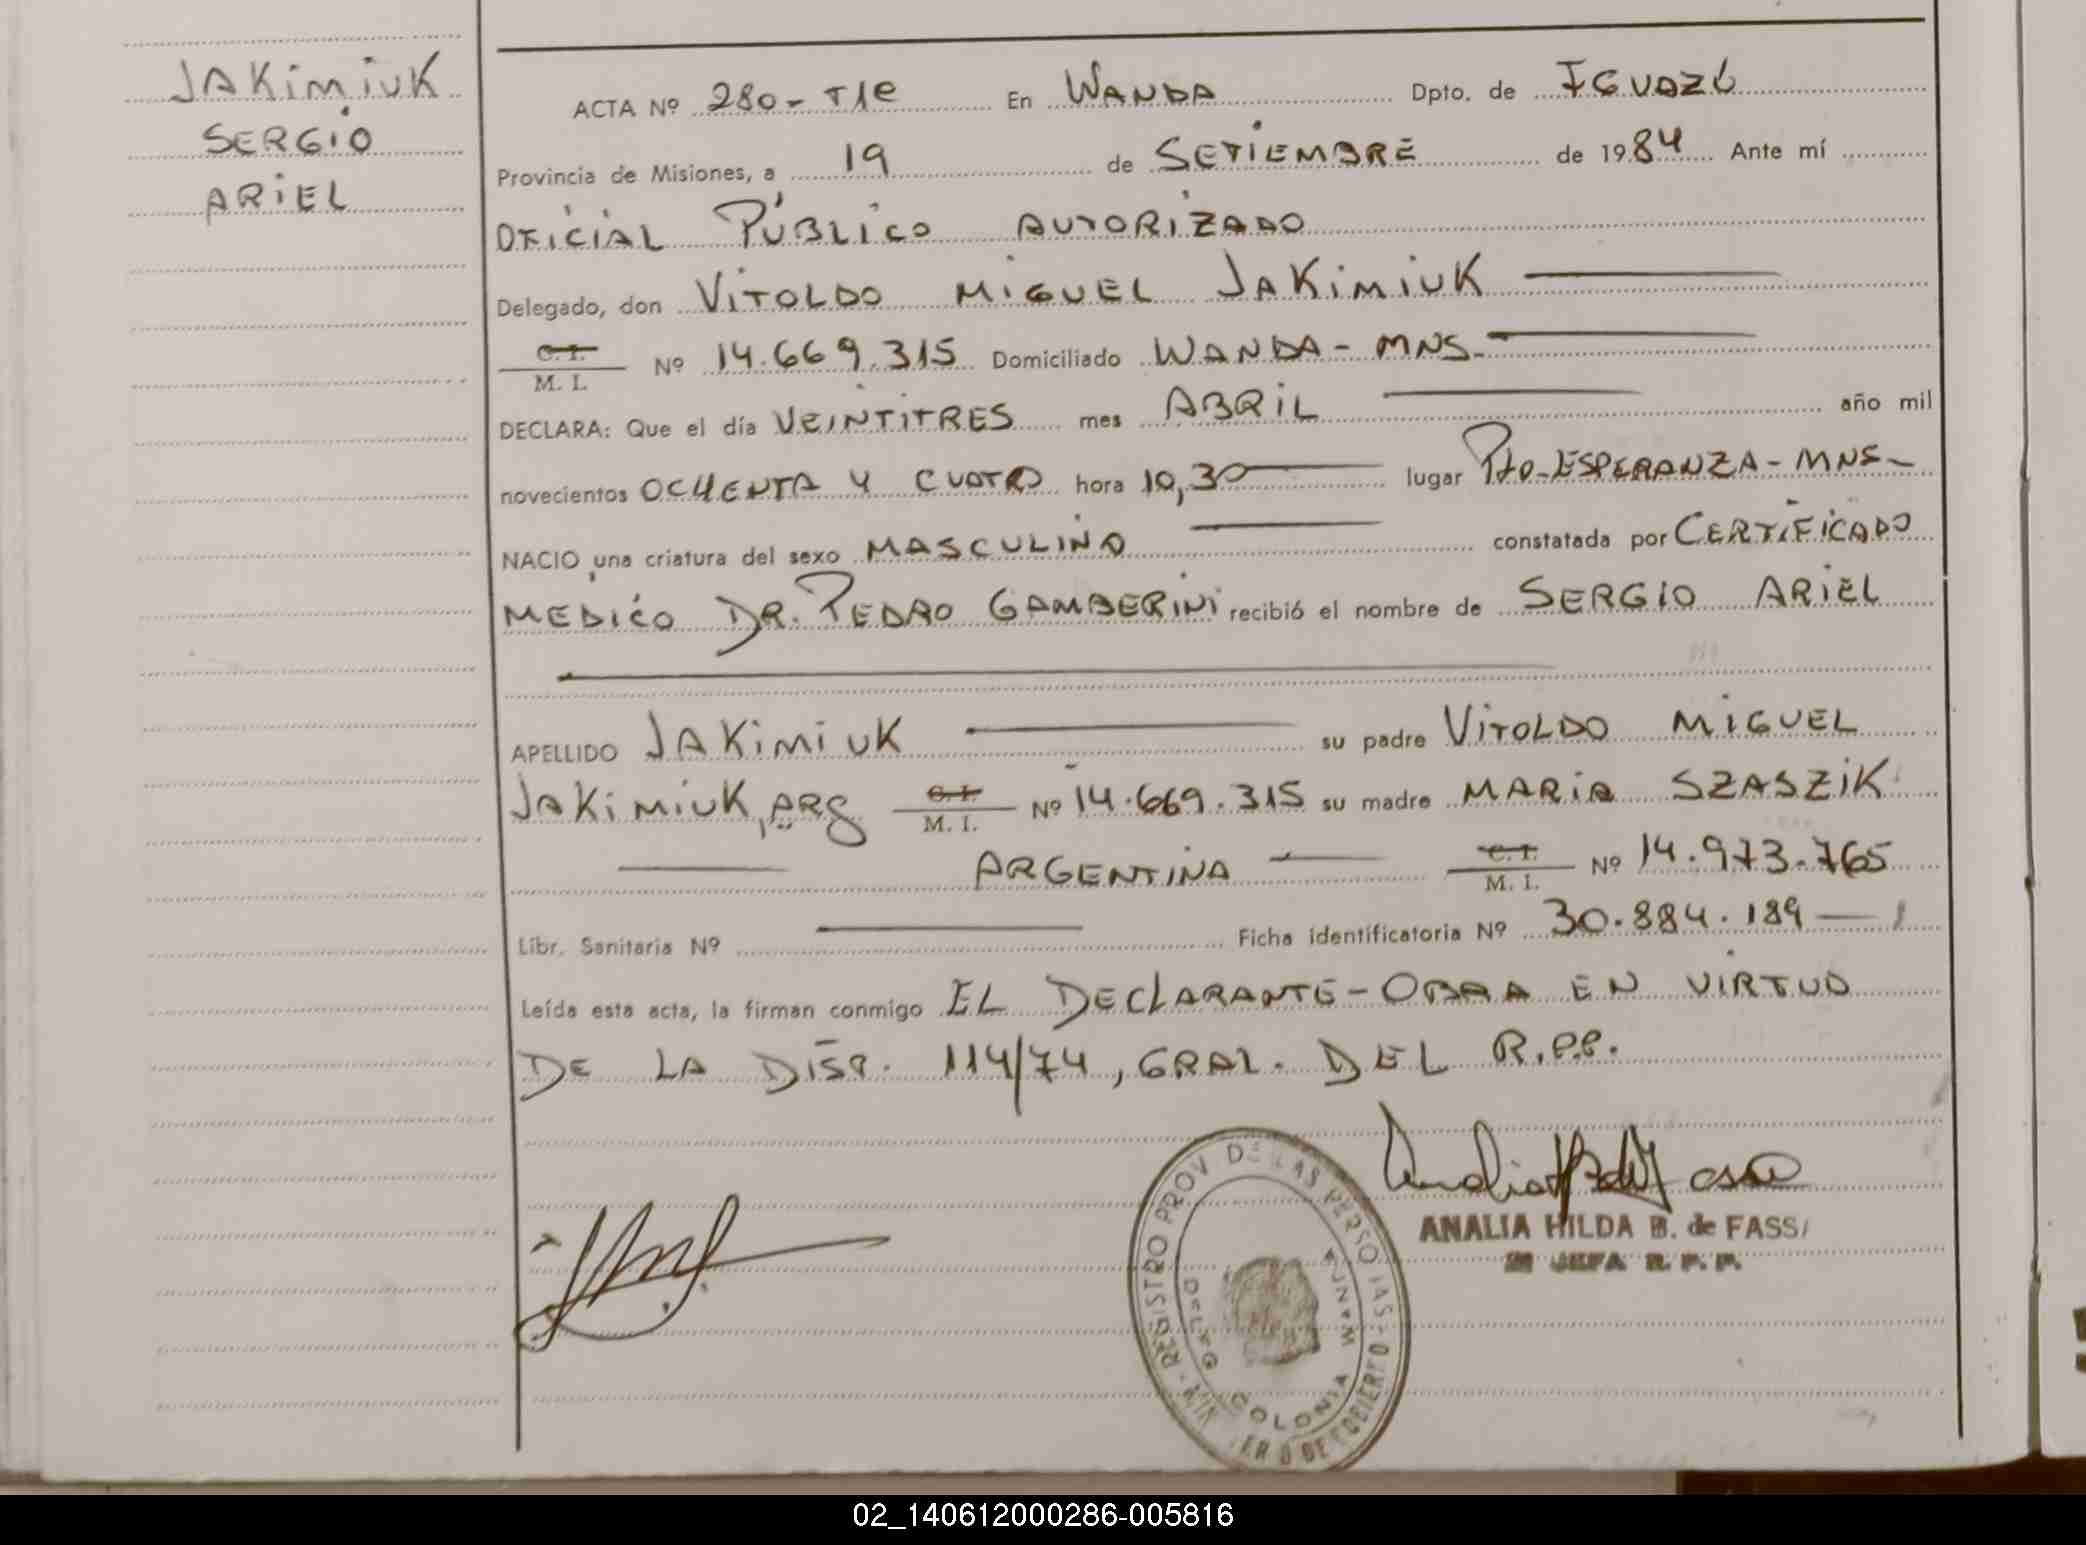 JAKIMIUK
SERGIO
ARIEL
ACTA Nº 280-T1e En WANDA Dpto. de IGUAZÚ
Provincia de Misiones, a 19 de SETIEMBRE de 1984 Ante mí
OFICIAL PÚBLICO AUTORIZADO
Delegado, don VITOLDO MIGUEL JAKIMIUK
C. I.
M. I. Nº 14.669.315 Domiciliado WANDA - MNS.
DECLARA: Que el día VEINTITRES mes ABRIL año mil
novecientos OCHENTA Y CUATRO hora 10,30 lugar Pto-ESPERANZA-MNS-
NACIO una criatura del sexo MASCULINO constatada por CERTIFICADO
MEDICO DR. PEDRO GAMBERINI recibió el nombre de SERGIO ARIEL
APELLIDO JAKIMIUK su padre VITOLDO MIGUEL
JAKIMIUK, ARG C. I. M. I. Nº 14.669.315 su madre MARIA SZASZIK
ARGENTINA C. I. M. I. Nº 14.973.765
Libr. Sanitaria Nº Ficha identificatoria Nº 30.884.189
Leída esta acta, la firman conmigo EL DECLARANTE-OBRA EN VIRTUD
DE LA DISP. 114/74, GRAL. DEL R.P.P.
REGISTRO PROV DE LAS PERSONAS
DELEG
COLONIA
WANDA
DE GOBIERNO
ANALIA HILDA B. de FASSI
JEFA R. P. P.
02_140612000286-005816